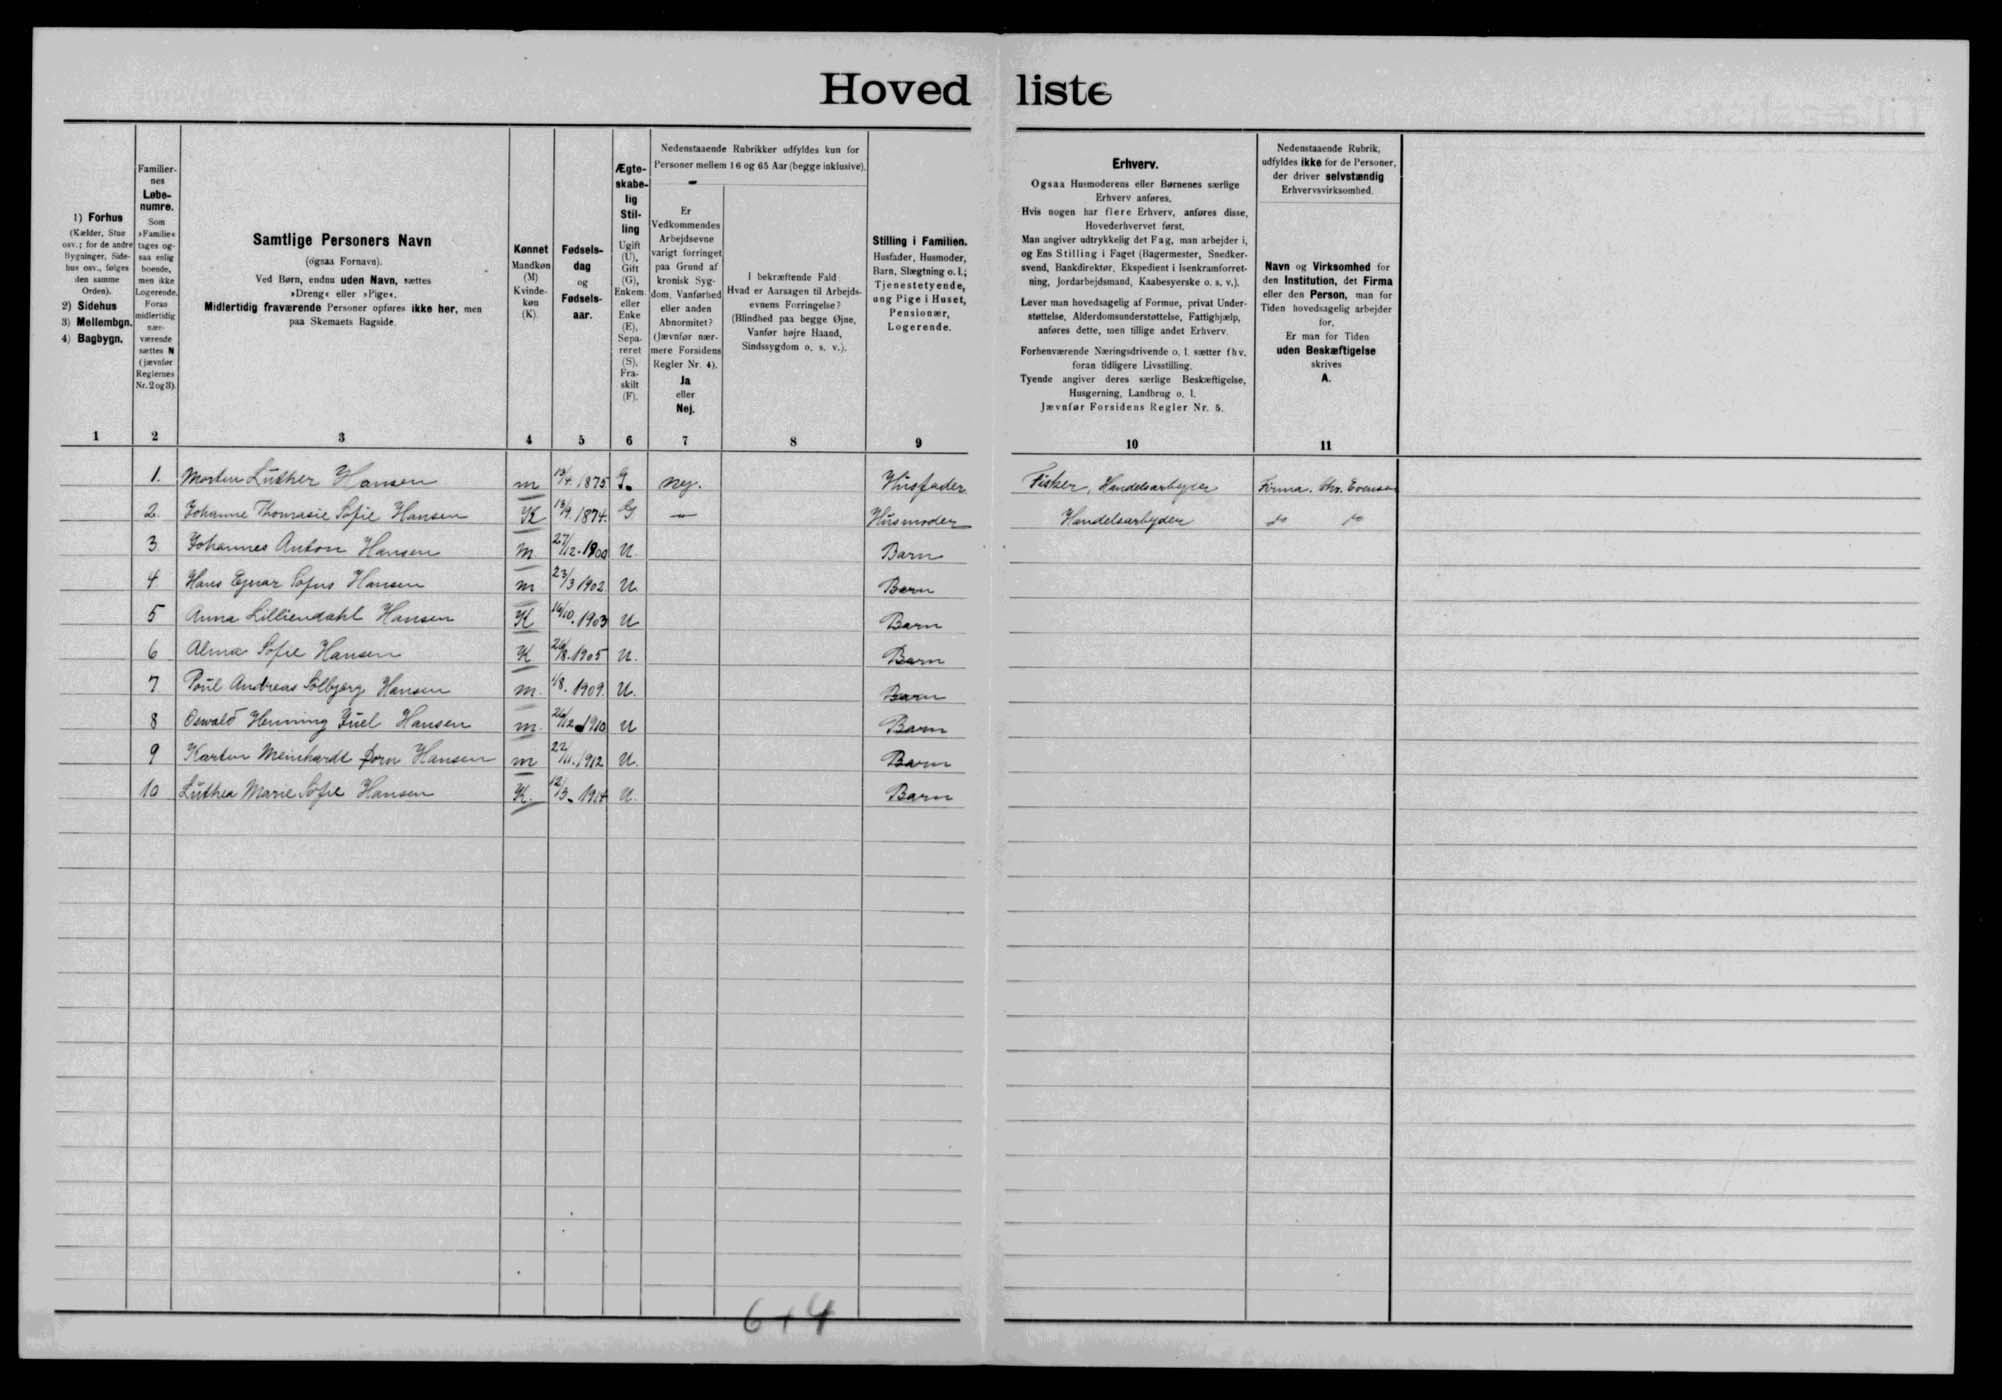 Hovedliste
1) Forhus
(Kælder, Stue
osv.; for de andre
Bygninger, Side-
hus osv., følges
den samme
Orden).
2) Sidehus
3) Mellembgn.
4) Bagbygn.
Familier-
nes
Løbe-
numre.
Som
»Familie«
tages og-
saa enlig
boende,
men ikke
Logerende.
Foran
midlertidig
nær-
værende
sættes N
(jævnfør
Reglernes
Nr. 2 og 3).
Samtlige Personers Navn
(ogsaa Fornavn).
Ved Børn, endnu uden Navn, sættes
»Dreng« eller »Pige«.
Midlertidig fraværende Personer opføres ikke her, men
paa Skemaets Bagside.
Kønnet
Mandkøn
(M)
Kvinde-
køn
(K).
Fødsels-
dag
og
Fødsels-
aar.
Ægte-
skabe-
lig
Stil-
ling
Ugift
(U),
Gift
(G),
Enkem.
eller
Enke
(E),
Sepa-
reret
(S),
Fra-
skilt
(F).
Nedenstaaende Rubrikker udfyldes kun for
Personer mellem 16 og 65 Aar (begge inklusive).
Er
Vedkommendes
Arbejdsevne
varigt forringet
paa Grund af
kronisk Syg-
dom, Vanførhed
eller anden
Abnormitet?
(Jævnfør nær-
mere Forsidens
Regler Nr. 4).
Ja
eller
Nej.
I bekræftende Fald
Hvad er Aarsagen til Arbejds-
evnens Forringelse?
(Blindhed paa begge Øjne,
Vanfør højre Haand,
Sindssygdom o. s. v.).
Stilling i Familien.
Husfader, Husmoder,
Barn, Slægtning o. l.;
Tjenestetyende,
ung Pige i Huset,
Pensionær,
Logerende.
Erhverv.
Ogsaa Husmoderens eller Børnenes særlige
Erhverv anføres.
Hvis nogen har flere Erhverv, anføres disse,
Hovederhvervet først.
Man angiver udtrykkelig det Fag, man arbejder i,
og Ens Stilling i Faget (Bagermester, Snedker-
svend, Bankdirektør, Ekspedient i Isenkramforret-
ning, Jordarbejdsmand, Kaabesyerske o. s. v.).
Lever man hovedsagelig af Formue, privat Under-
støttelse, Alderdomsunderstøttelse, Fattighjælp,
anføres dette, men tillige andet Erhverv.
Forhenværende Næringsdrivende o. l. sætter fhv.
foran tidligere Livsstilling.
Tyende angiver deres særlige Beskæftigelse,
Husgerning, Landbrug o. l.
Jævnfør Forsidens Regler Nr. 5.
Nedenstaaende Rubrik,
udfyldes ikke for de Personer,
der driver selvstændig
Erhvervsvirksomhed.
Navn og Virksomhed for
den Institution, det Firma
eller den Person, man for
Tiden hovedsagelig arbejder
for,
Er man for Tiden
uden Beskæftigelse
skrives
A.
1 2 3 4 5 6 7 8 9 10 11
1. Morten Luther Hansen m 13/4. 1875 G. Nej. Husfader Fisker, Handelsarbejder Firma. Chr. Evensen
2. Johanne Thomasie Sofie Hansen K 13/9. 1874. G — Husmoder Handelsarbejder do do
3. Johannes Anton Hansen M. 27/12. 1900 U. Barn
4 Hans Ejnar Sofus Hansen m 23/3 1902. U. Barn
5 Anna Lilliendahl Hansen K 16/10. 1903 U Barn
6 Alma Sofie Hansen K 26/8. 1905 U. Barn
7 Poul Andreas Solbjørg Hansen m. 1/8. 1909. U. Barn
8 Osvald Henning Juel Hansen m. 26/12 1910 U Barn
9 Karsten Meinhardt Dorn Hansen m 22/11. 1912 U. Barn
10 Luthea Marie Sofie Hansen K. 12/3. 1914 U. Barn
6+4